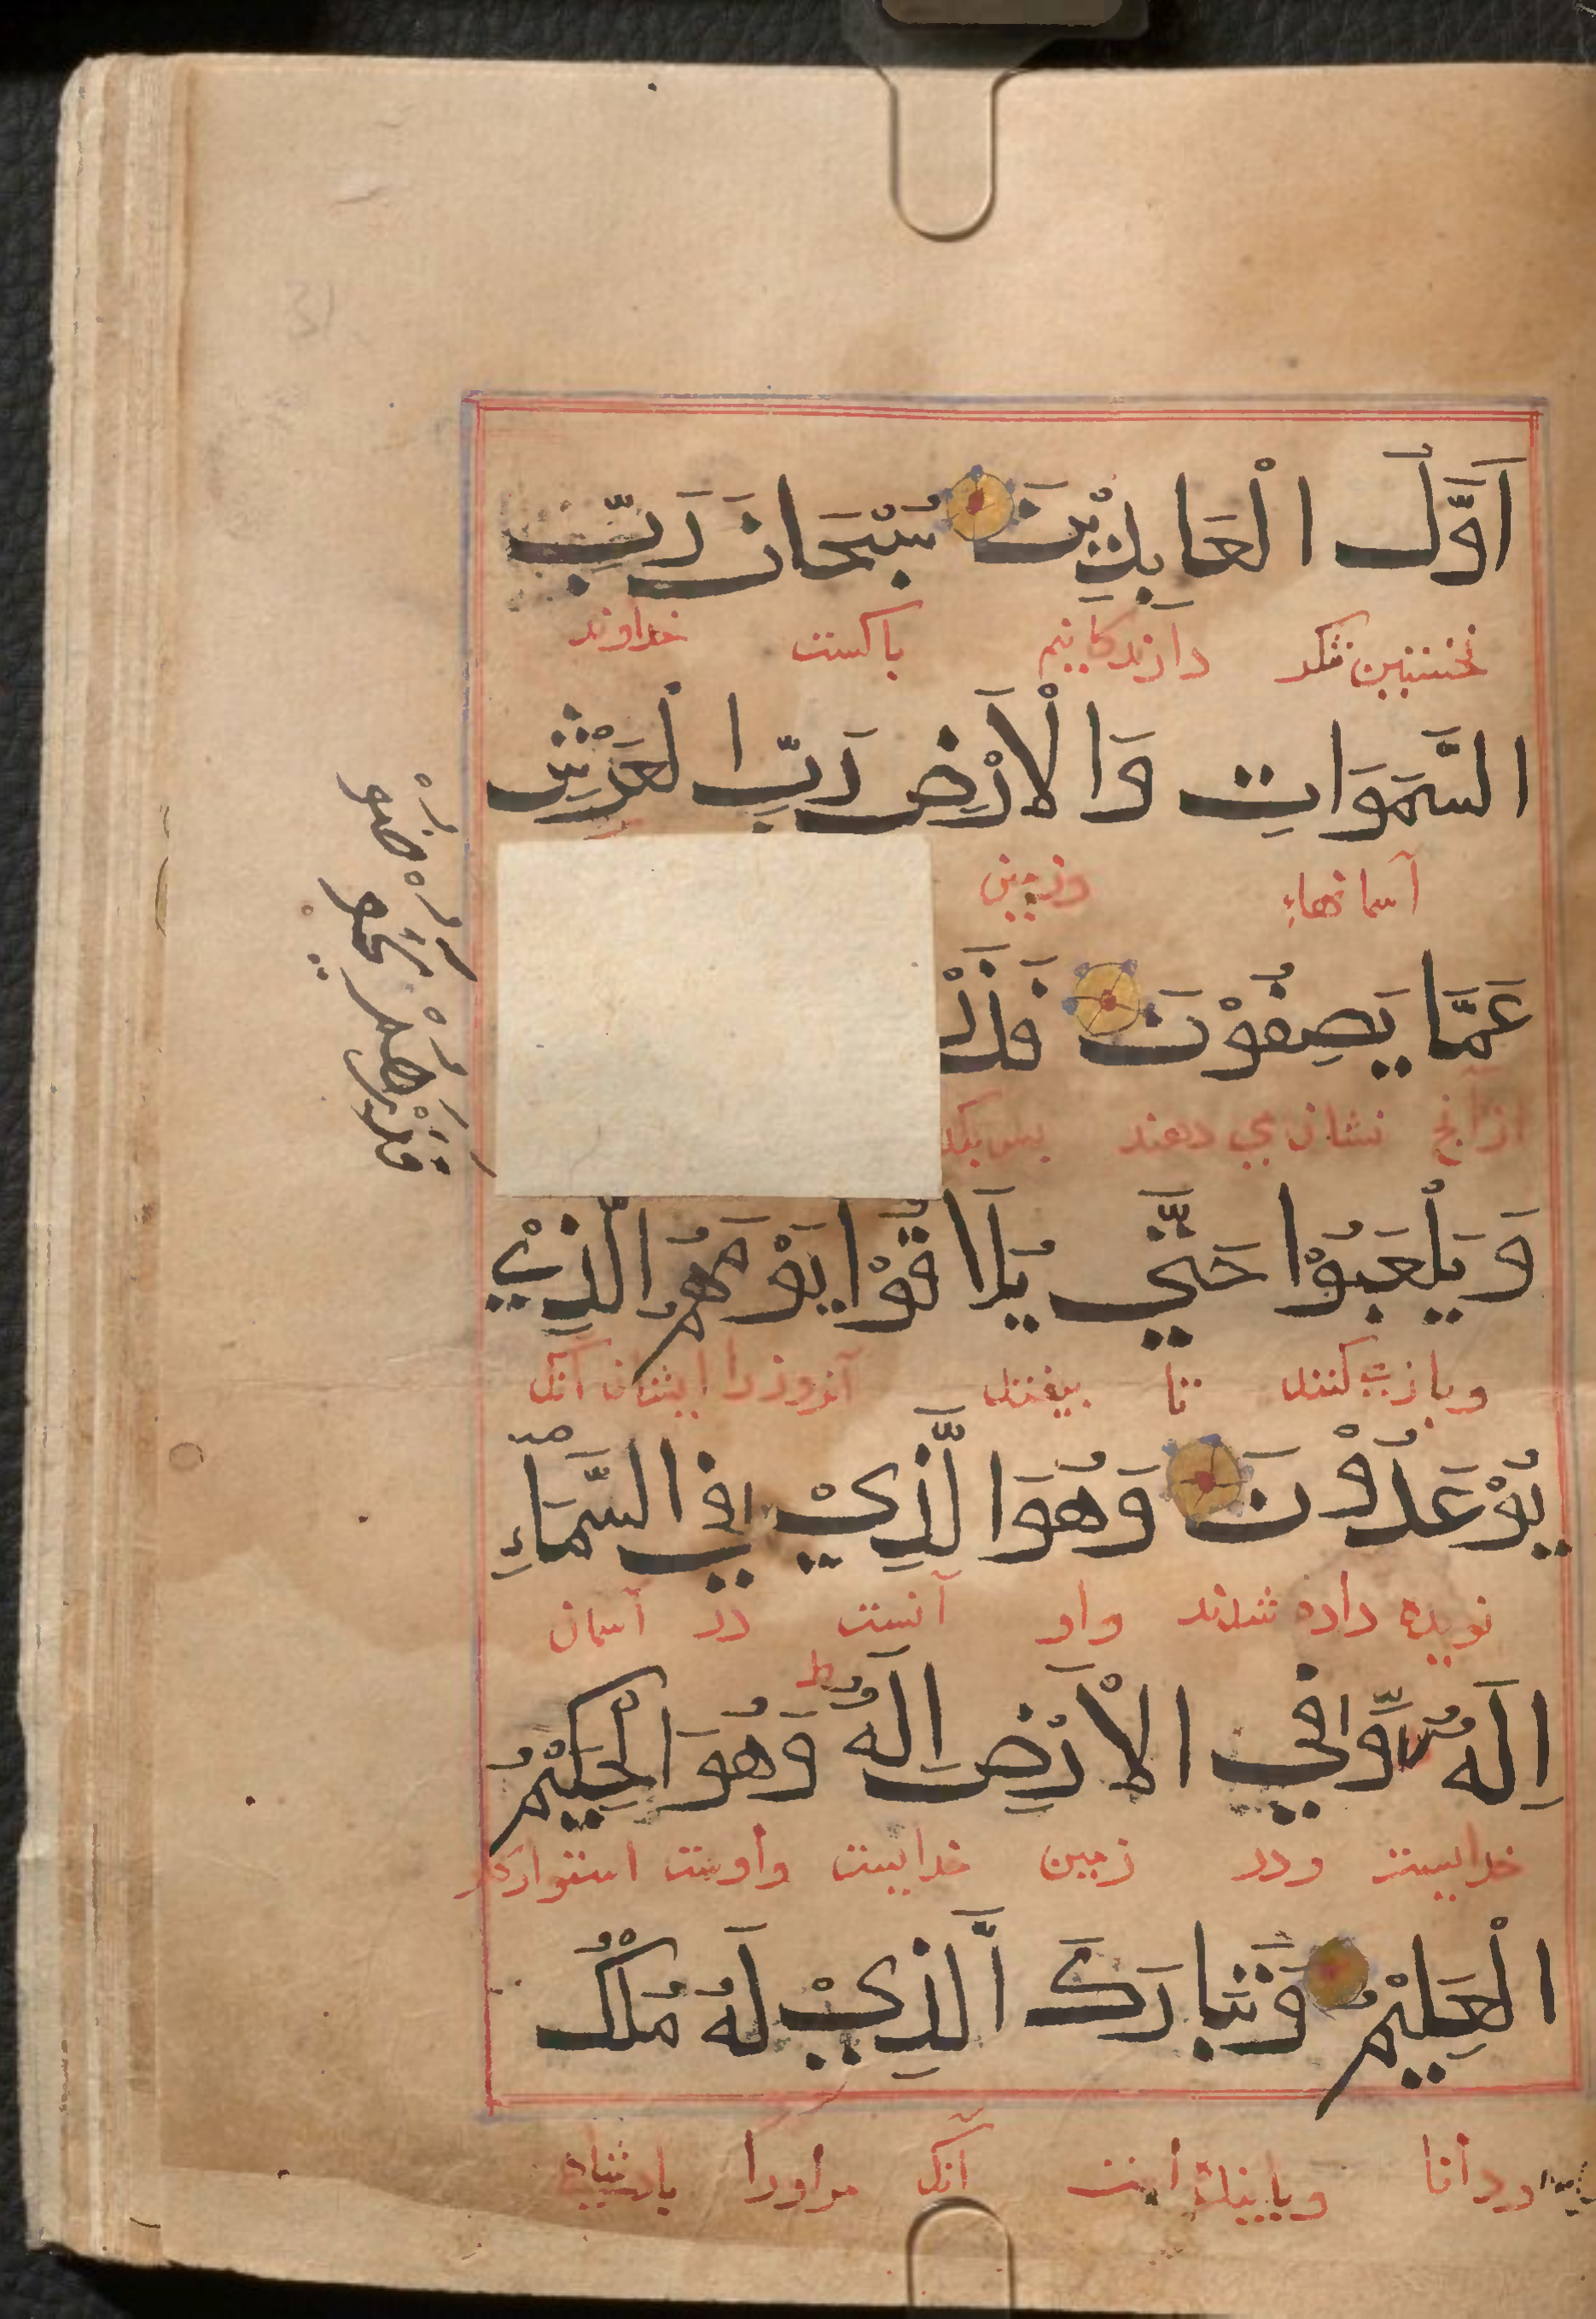 اَوَّلُ الْعَابِدِيْنَ سُبْحَانَ رَبِّ
نخستین شکر دارندکانیم باکست خداوند
السَّمَوَاتِ وَالْاَرْضِ رَبِّ الْعَرْشِ
آسمانهاء وزمین
عَمَّا يَصِفُوْنَ فَذَرْ
ازآنج نشان می دهند بس بکذ
وَيَلْعَبُوْا حَتَّي يُلَاقُوْا يَوْمَهُمُ الَّذِيْ
وبازی کنند تا ببینند آنروزرا ایشان آنک
يُوْعَدُوْنَ وَهُوَ الَّذِيْ فِي السَّمَاءِ
نویده داده شدند واو آنست در آسمان
اِلَهٌ وَّفِي الْاَرْضِ اِلَهٌ ط وَهُوَ الْحَكِيْمُ
خدایست ودر زمین خدایست واوست استوارکار
الْعَلِيْمُ وَتَبَارَكَ الَّذِيْ لَهُ مُلْكُ
ودانا وبایندۀ است آنک مراورا بادشاهی
فَذَرْهُمْ